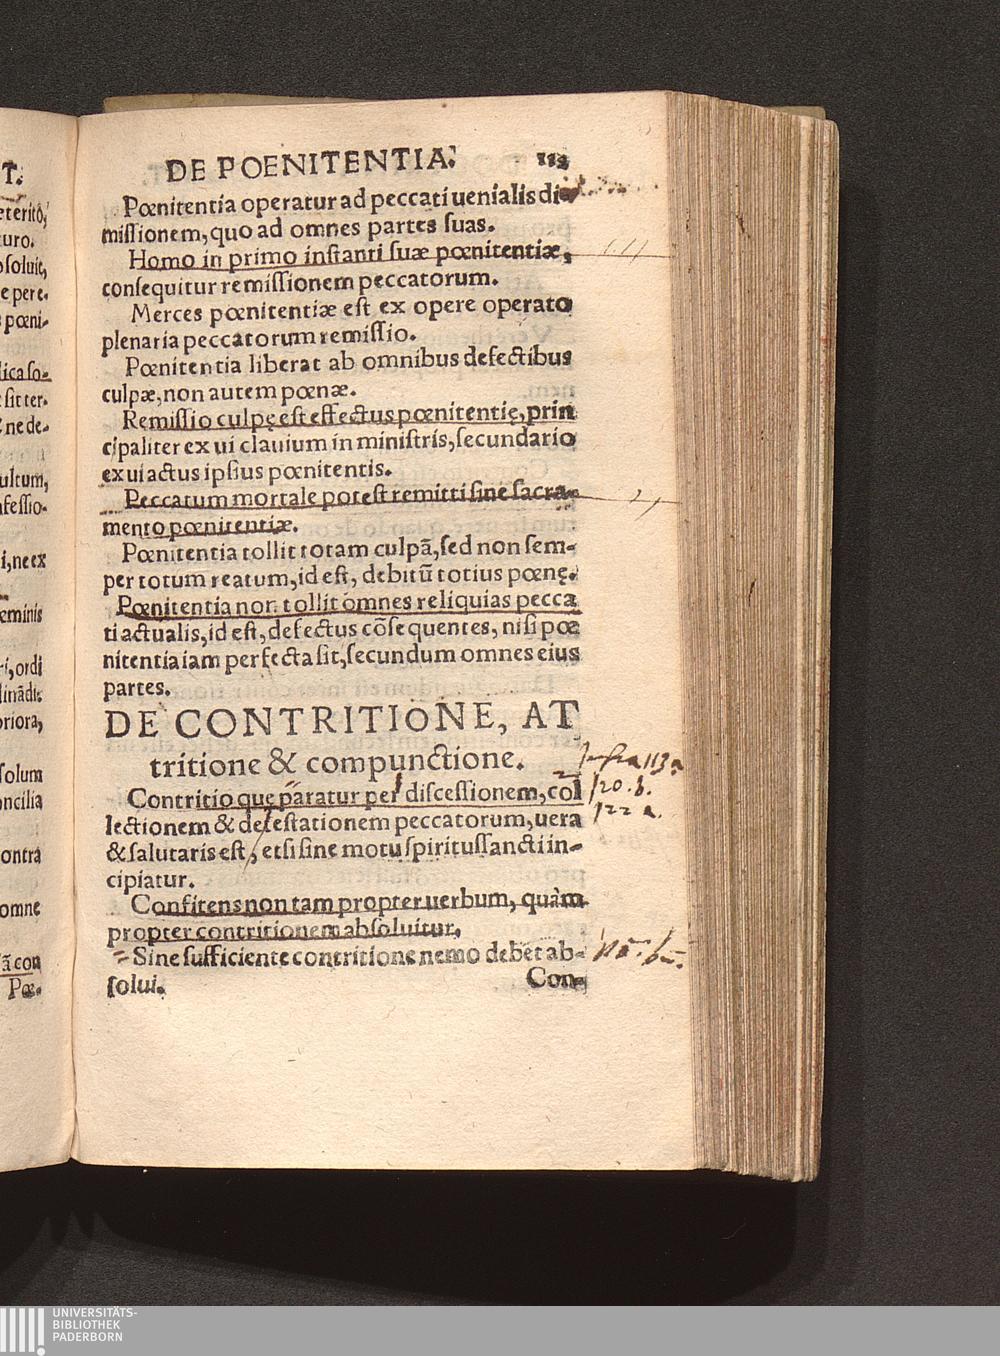 T.
DE POENITENTIA.
Pœnitentia operatur ad peccati uenialis di-
missionem, quo ad omnes partes suas.
Homo in primo instanti suæ pœnitentiæ,
consequitur remissionem peccatorum.
Merces pœnitentiæ est ex opere operato
plenaria peccatorum remissio.
Pœnitentia liberat ab omnibus defectibus
culpæ, non autem pœnæ.
Remissio culpę est effectus pœnitentię, prin
cipaliter ex ui clauium in ministris, secundario
ex ui actus ipsius pœnitentis.
Peccatum mortale potest remitti sine sacra-
mento pœnitentiæ.
Pœnitentia tollit totam culpã, sed non sem-
per totum reatum, id est, debitũ totius pœnę.
Pœnitentia non tollit omnes reliquias pecca
ti actualis, id est, defectus cõsequentes, nisi pœ
nitentia iam perfecta sit, secundum omnes eius
partes.
DE CONTRITIONE, AT
tritione & compunctione.
Infra 113 a
Contritio que paratur per discessionem, col
120. b.
lectionem & detestationem peccatorum, uera
122 a.
& salutaris est, etsi sine motu spiritussancti in-
cipiatur.
Confitens non tam propter uerbum, quàm
propter contritionem absoluitur.
Sine sufficiente contritione nemo debet ab-
solui.
Con-
eterito,
turo.
bsoluit,
e pere.
pœni-
lica so-
sit ter.
ne de-
ultum,
nfessio-
i, ne ex
eminis
i, ordi
linãdi:
oriora,
solum
oncilia
ontra
omne
ã con
Pœ-
UNIVERSITÄTS-
BIBLIOTHEK
PADERBORN